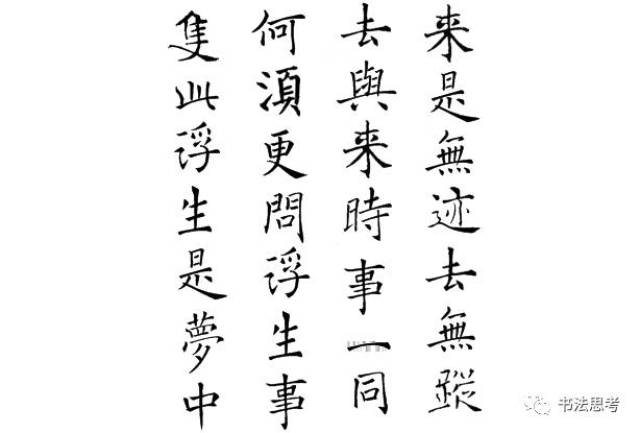 来是無迹去無蹤
去與来時事一同
何湏更問浮生事
隻此浮生是夢中
书法思考